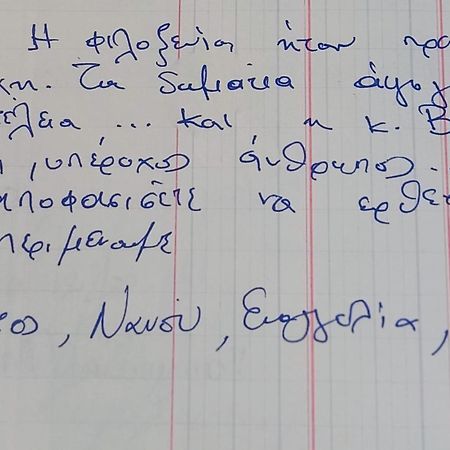 Η φιλοξενία ήταν πρα
κη. Τα δωμάτια άψογ
τέλεια ... και η κ. Β
, υπέροχος άνθρωπος.
αποφασισετε να ερθε
περιμεναμε
ος, Νανσυ, Ευαγγελία,